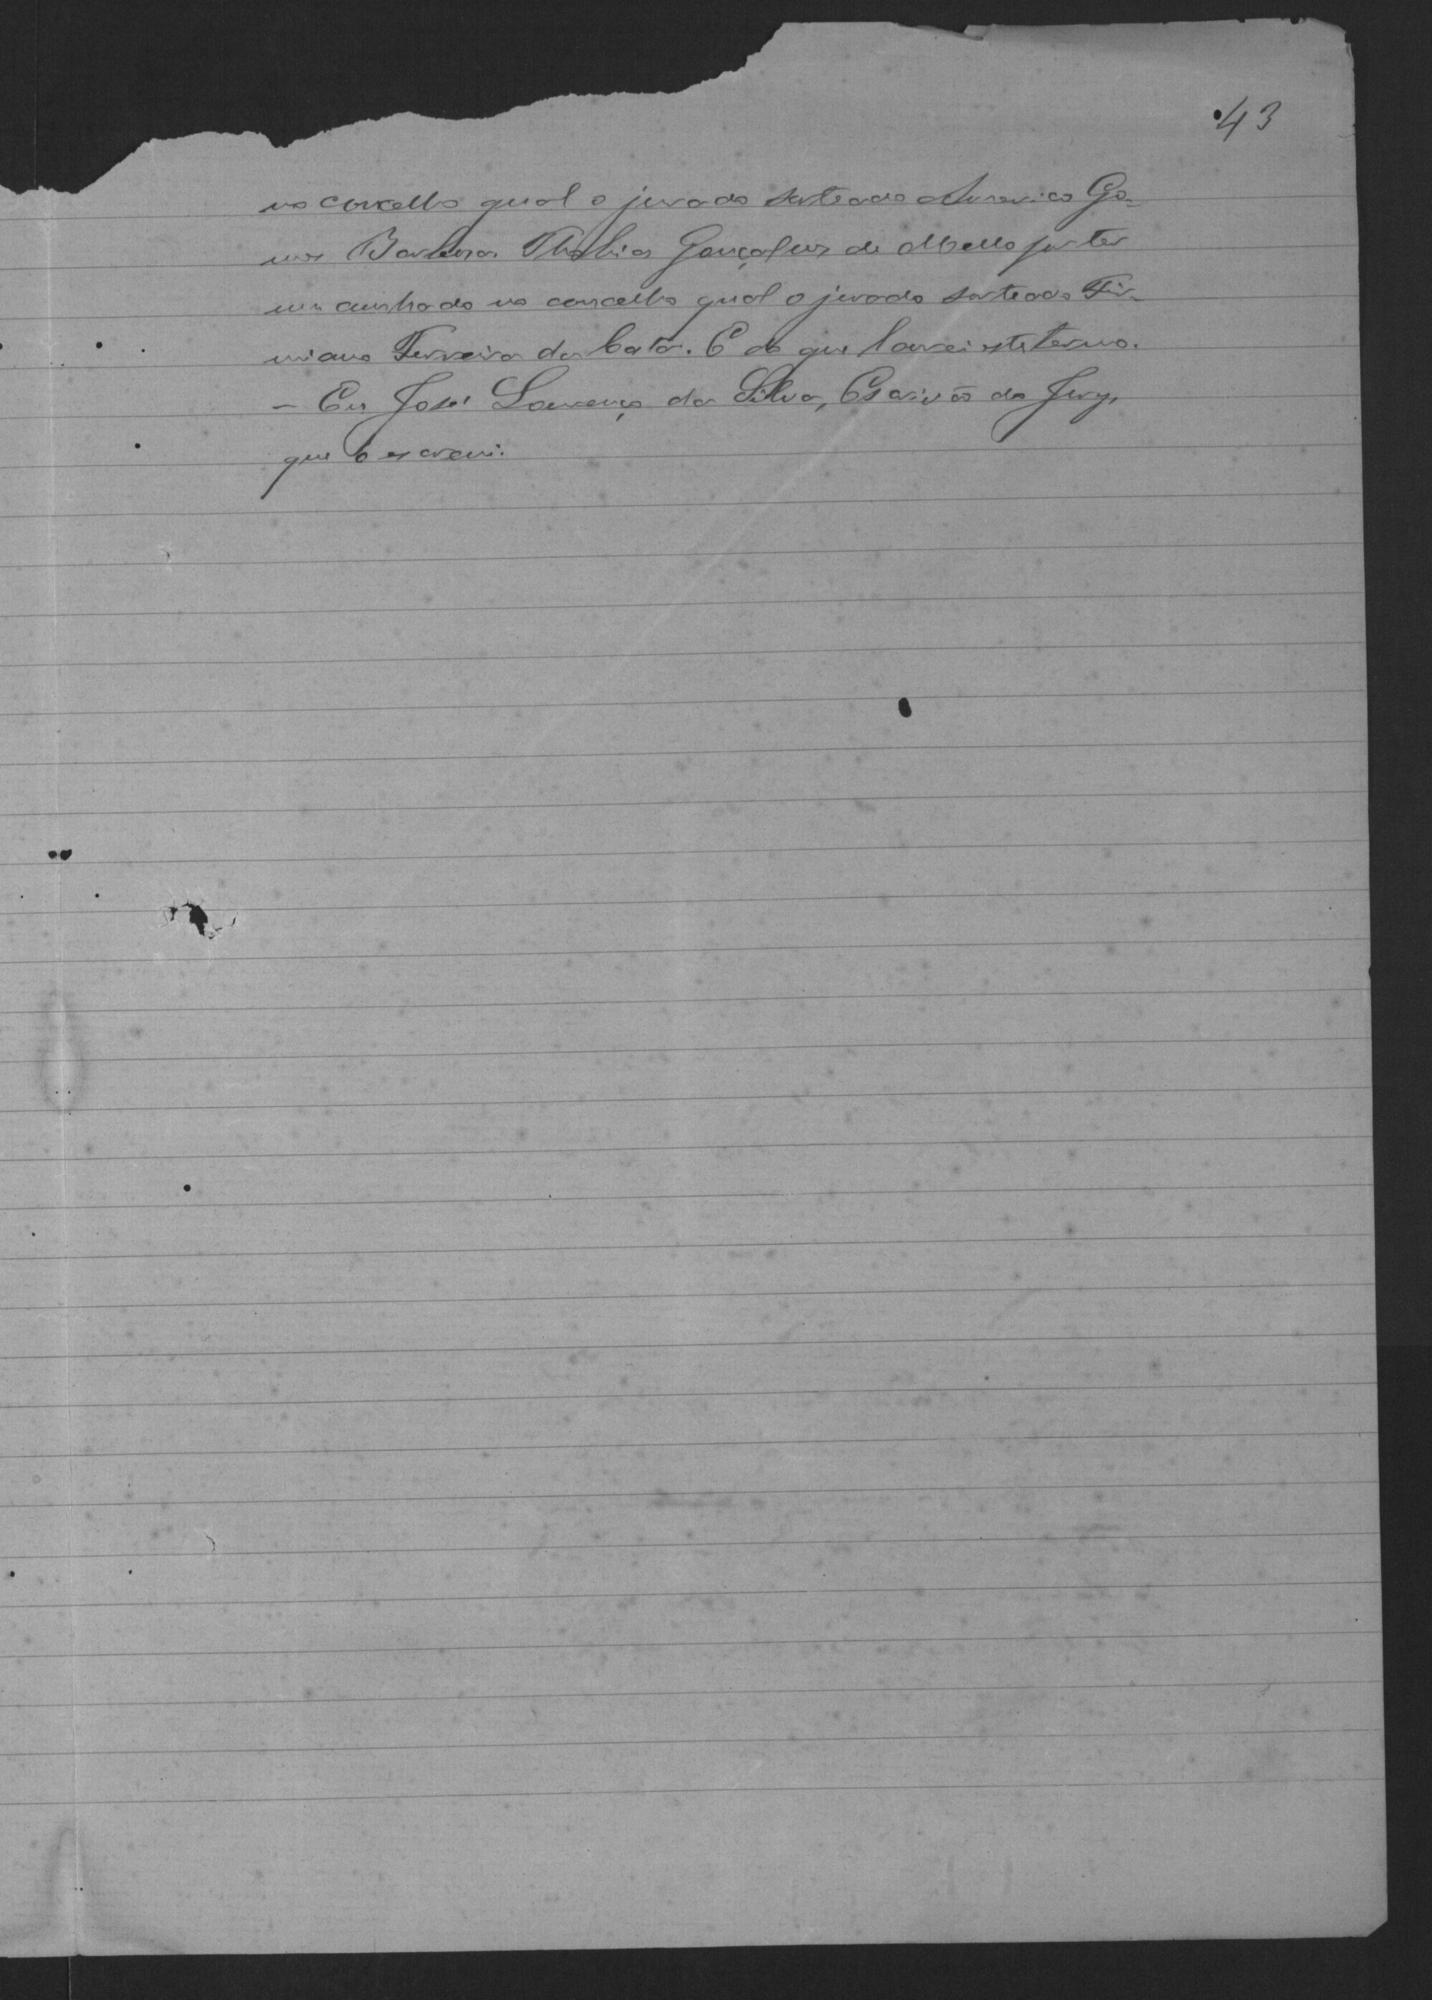 43
no concelho qual o jurado sorteado Americo Go-
mes Barbosa Thobias Gonçalves de Mello por ter
um cunhado no concelho qual o jurado sorteado Fir-
miano Ferreira da Costa. E do que lavrei este termo.
– Eu José Lourenço da Silva, Escrivão do Jury,
que o escrevi.